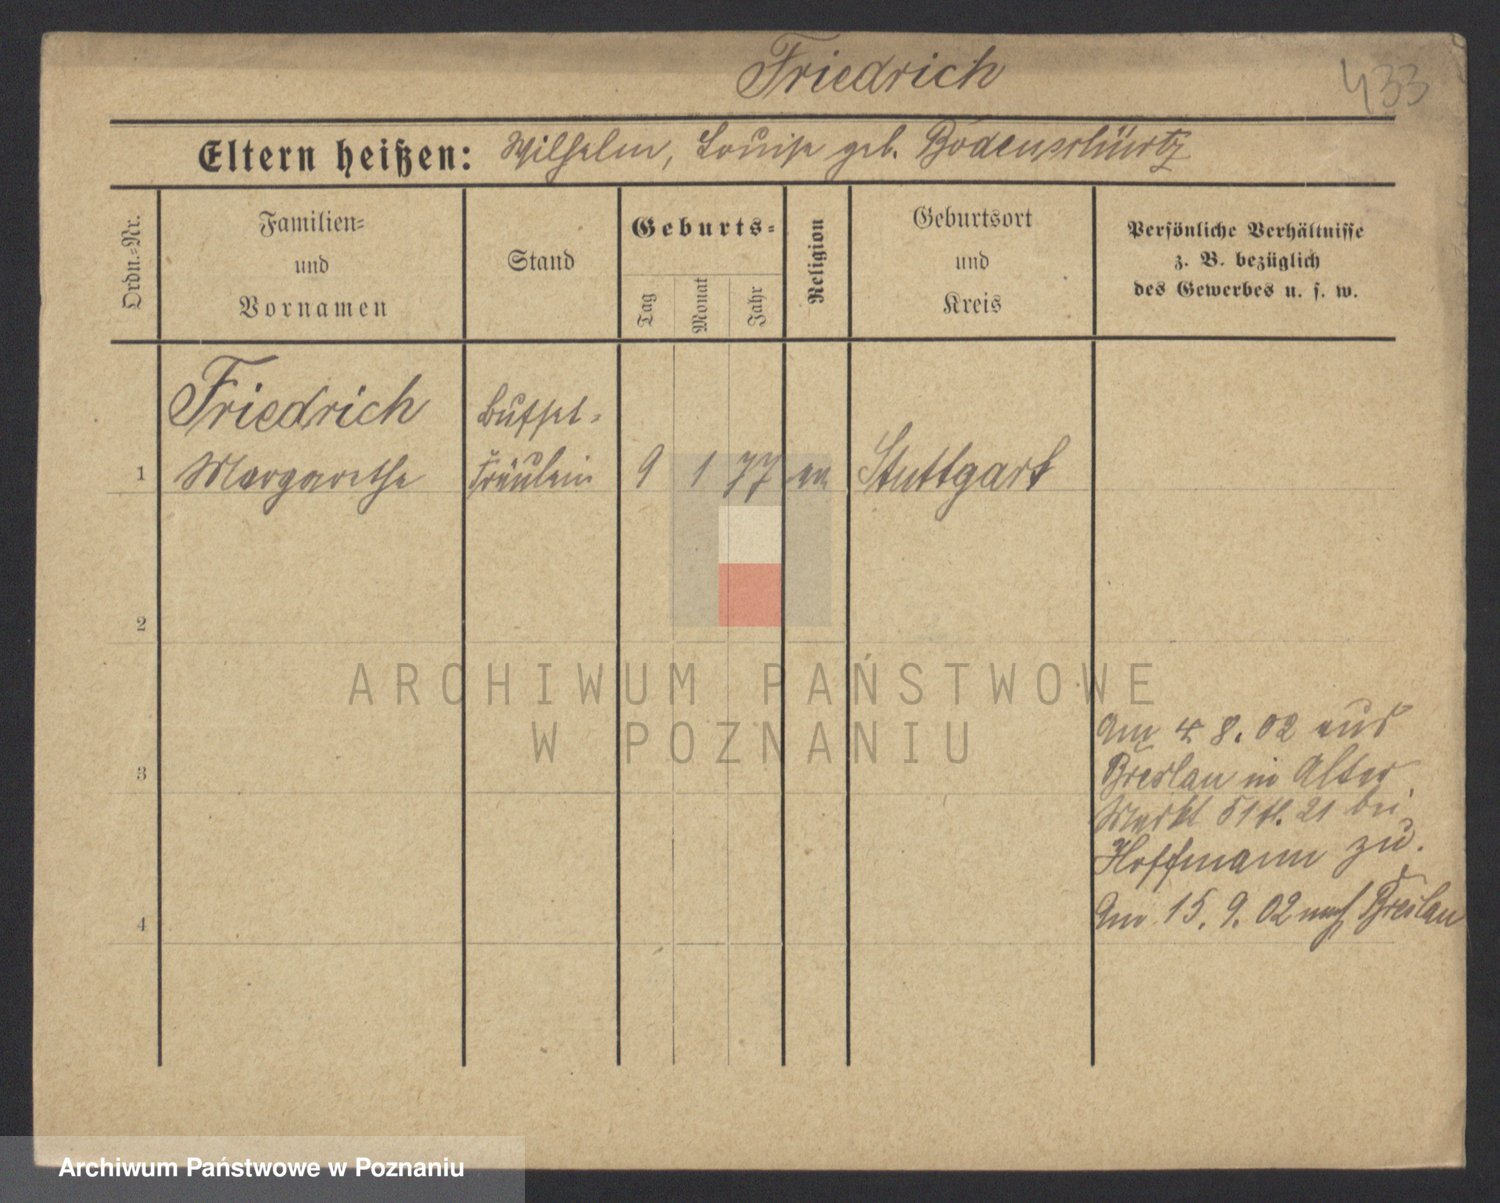 Friedrich
433
Eltern heißen: Wilhelm, Louise geb. Bodenschürtz
Ordn.-Nr.
Familien-
und
Vornamen
Stand
Geburts-
Tag
Monat
Jahr
Religion
Geburtsort
und
Kreis
Persönliche Verhältnisse
z. B. bezüglich
des Gewerbes u. s. w.
Friedrich Buffet-
1 Margarethe Fräulein 9 1 77 ev. Stuttgart
2
3
4
Am 4. 8. 02 aus
Breslau in Alter
Markt 51 II. 21 bei
Hoffmann zu.
Am 15. 9. 02 nach Breslau
ARCHIWUM PAŃSTWOWE
W POZNANIU
Archiwum Państwowe w Poznaniu